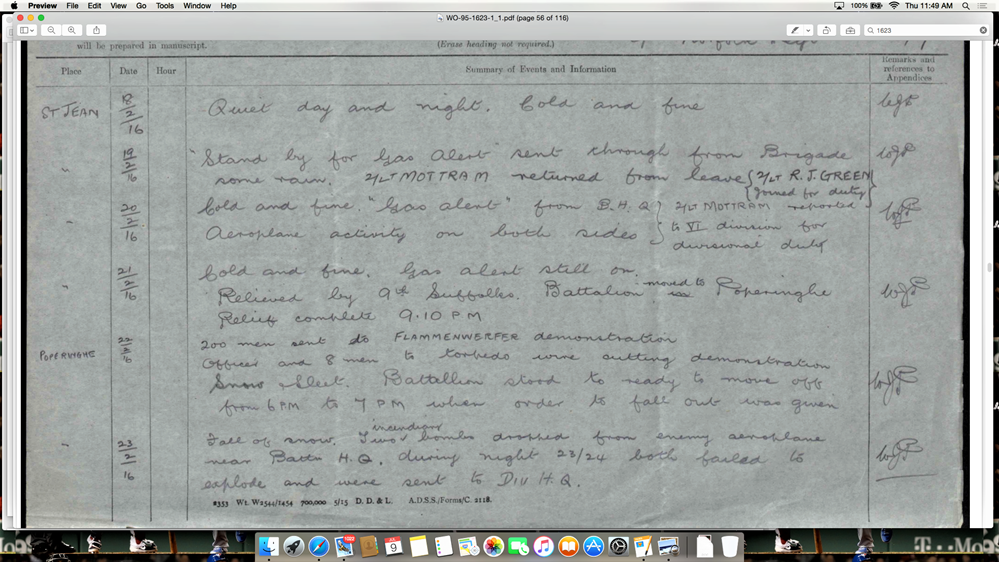 Preview File Edit View Go Tools Window Help
100% Thu 11:49 AM
WO-95-1623-1_1.pdf (page 56 of 116)
1623
will be prepared in manuscript.
(Erase heading not required.)
Place Date Hour Summary of Events and Information Remarks and references to Appendices
ST JEAN 18/2/16 Quiet day and night. Cold and fine
" 19/2/16 "Stand by for Gas Alert" sent through from Brigade
some rain. 2/LT MOTTRAM returned from leave { 2/LT R.J. GREEN
joined for duty }
" 20/2/16 Cold and fine. "Gas alert" from B.H.Q } 2/LT MOTTRAM reported
Aeroplane activity on both sides } to VI division for
divisional duty
" 21/2/16 Cold and fine. Gas alert still on.
Relieved by 9th Suffolks. Battalion moved to Poperinghe
Relief complete 9.10 PM
POPERINGHE 22/2/16 200 men sent to FLAMMENWERFER demonstration
Officer and 8 men to torpedo wire cutting demonstration
Snow & Sleet. Battallion stood to ready to move off
from 6 PM to 7 PM when order to fall out was given
" 23/2/16 Fall of snow. Two incendiary bombs dropped from enemy aeroplane
near Battn H.Q. during night 23/24 both failed to
explode and were sent to DIV H.Q.
2353 Wt. W2544/1454 700,000 5/15 D. D. & L. A.D.S.S./Forms/C. 2118.
9
T··Mo